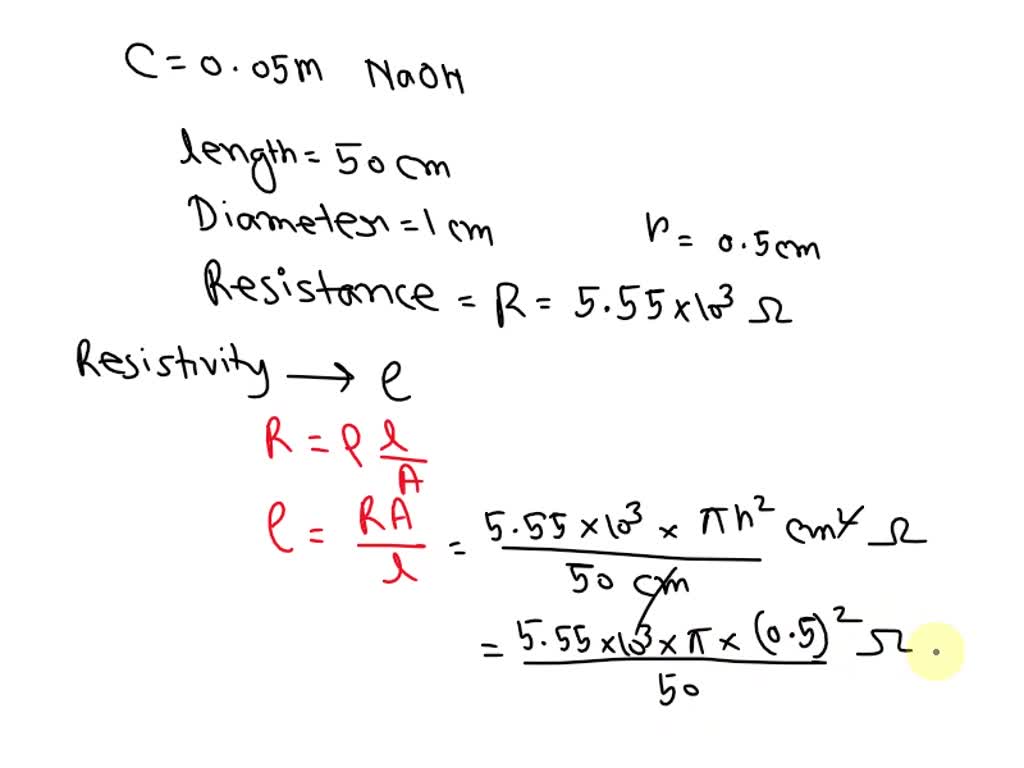 C = 0.05m NaOH
length = 50 cm
Diameter = 1 cm r = 0.5cm
Resistance = R = 5.55 × 10³ Ω
Resistivity → ρ
R = ρ l/A
ρ = RA/l = 5.55 × 10³ × πr² cm² Ω / 50 cm
= 5.55 × 10³ × π × (0.5)² Ω / 50